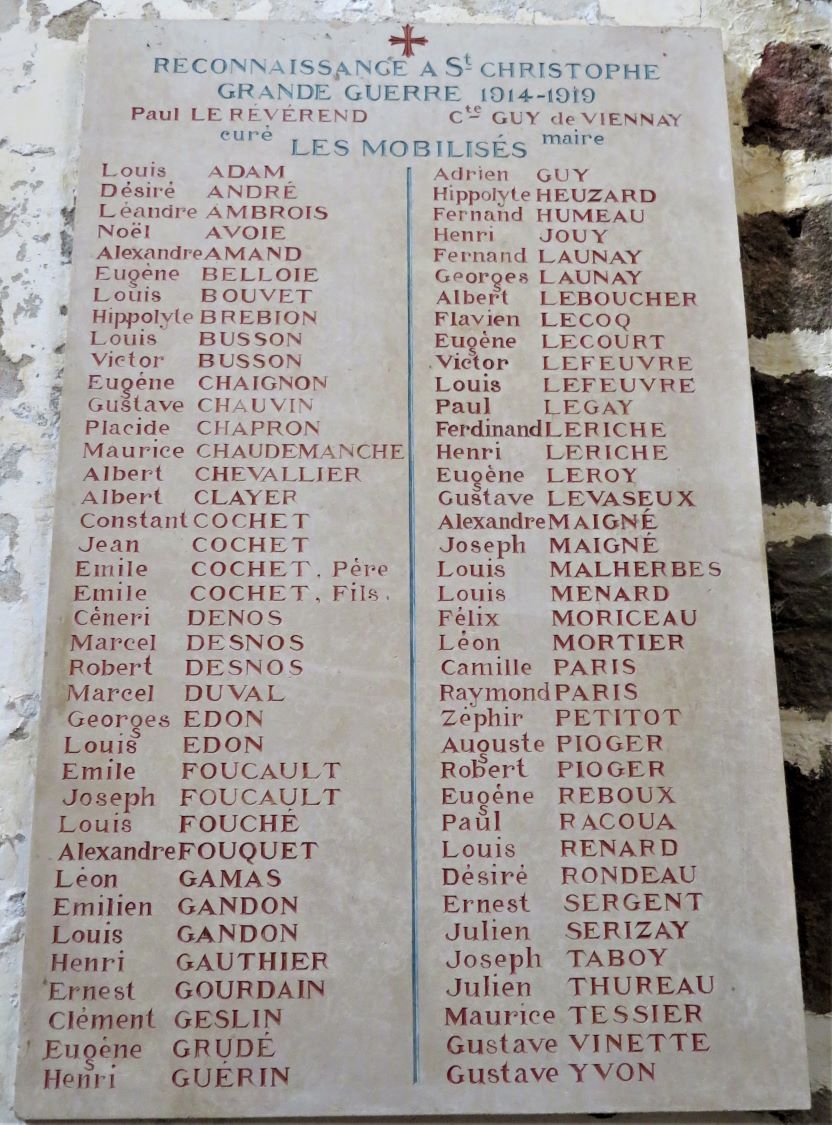 RECONNAISSANGE A St CHRISTOPHE
GRANDE GUERRE 1914-1919
Paul LE RÉVÉREND
curé
Cte GUY de VIENNAY
maire
LES MOBILISÉS
Louis ADAM
Désiré ANDRÉ
Léandre AMBROIS
Noël AVOIE
Alexandre AMAND
Eugène BELLOIE
Louis BOUVET
Hippolyte BREBION
Louis BUSSON
Victor BUSSON
Eugène CHAIGNON
Gustave CHAUVIN
Placide CHAPRON
Maurice CHAUDEMANCHE
Albert CHEVALLIER
Albert CLAYER
Constant COCHET
Jean COCHET
Emile COCHET, Père
Emile COCHET, Fils.
Céneri DENOS
Marcel DESNOS
Robert DESNOS
Marcel DUVAL
Georges EDON
Louis EDON
Emile FOUCAULT
Joseph FOUCAULT
Louis FOUCHÉ
Alexandre FOUQUET
Léon GAMAS
Emilien GANDON
Louis GANDON
Henri GAUTHIER
Ernest GOURDAIN
Clément GESLIN
Eugène GRUDÉ
Henri GUÉRIN
Adrien GUY
Hippolyte HEUZARD
Fernand HUMEAU
Henri JOUY
Fernand LAUNAY
Georges LAUNAY
Albert LEBOUCHER
Flavien LECOQ
Eugène LECOURT
Victor LEFEUVRE
Louis LEFEUVRE
Paul LEGAY
Ferdinand LERICHE
Henri LERICHE
Eugène LEROY
Gustave LEVASEUX
Alexandre MAIGNÉ
Joseph MAIGNÉ
Louis MALHERBES
Louis MENARD
Félix MORICEAU
Léon MORTIER
Camille PARIS
Raymond PARIS
Zéphir PETITOT
Auguste PIOGER
Robert PIOGER
Eugène REBOUX
Paul RACOUA
Louis RENARD
Désiré RONDEAU
Ernest SERGENT
Julien SERIZAY
Joseph TABOY
Julien THUREAU
Maurice TESSIER
Gustave VINETTE
Gustave YVON